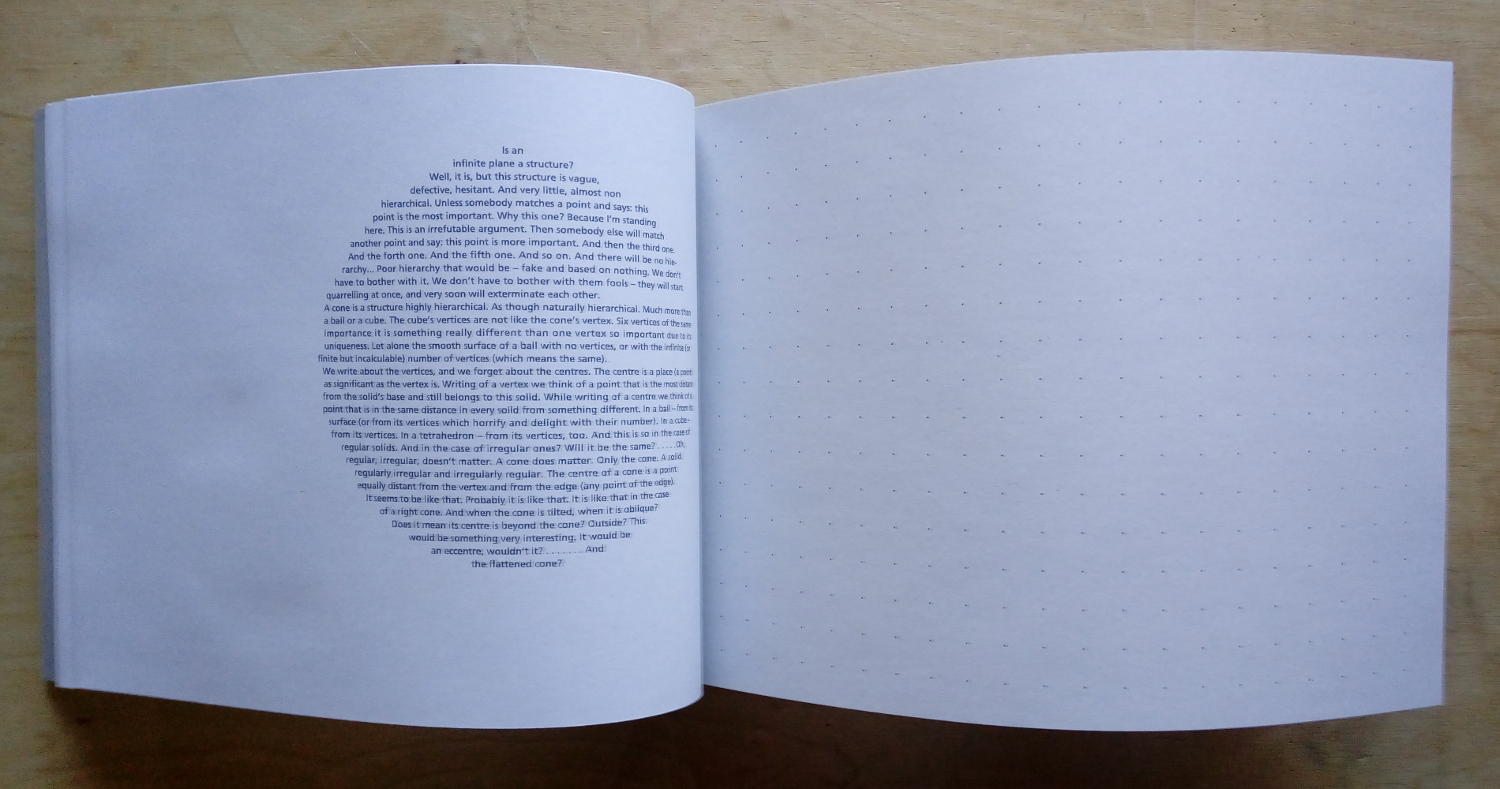 Is an
infinite plane a structure?
Well, it is, but this structure is vague,
defective, hesitant. And very little, almost non
hierarchical. Unless somebody matches a point and says: this
point is the most important. Why this one? Because I'm standing
here. This is an irrefutable argument. Then somebody else will match
another point and say: this point is more important. And then the third one.
And the forth one. And the fifth one. And so on. And there will be no hie-
rarchy... Poor hierarchy that would be – fake and based on nothing. We don't
have to bother with it. We don't have to bother with them fools – they will start
quarrelling at once, and very soon will exterminate each other.
A cone is a structure highly hierarchical. As though naturally hierarchical. Much more than
a ball or a cube. The cube's vertices are not like the cone's vertex. Six vertices of the same
importance it is something really different than one vertex so important due to its
uniqueness. Let alone the smooth surface of a ball with no vertices, or with the infinite (or
finite but incalculable) number of vertices (which means the same).
We write about the vertices, and we forget about the centres. The centre is a place (a point)
as significant as the vertex is. Writing of a vertex we think of a point that is the most distant
from the solid's base and still belongs to this solid. While writing of a centre we think of a
point that is in the same distance in every soild from something different. In a ball – from its
surface (or from its vertices which horrify and delight with their number). In a cube –
from its vertices. In a tetrahedron – from its vertices, too. And this is so in the case of
regular solids. And in the case of irregular ones? Will it be the same? ..... Oh,
regular, irregular, doesn't matter. A cone does matter. Only the cone. A solid
regularly irregular and irregularly regular. The centre of a cone is a point
equally distant from the vertex and from the edge (any point of the edge).
It seems to be like that. Probably it is like that. It is like that in the case
of a right cone. And when the cone is tilted, when it is oblique?
Does it mean its centre is beyond the cone? Outside? This
would be something very interesting. It would be
an eccentre, wouldn't it? ......... And
the flattened cone?